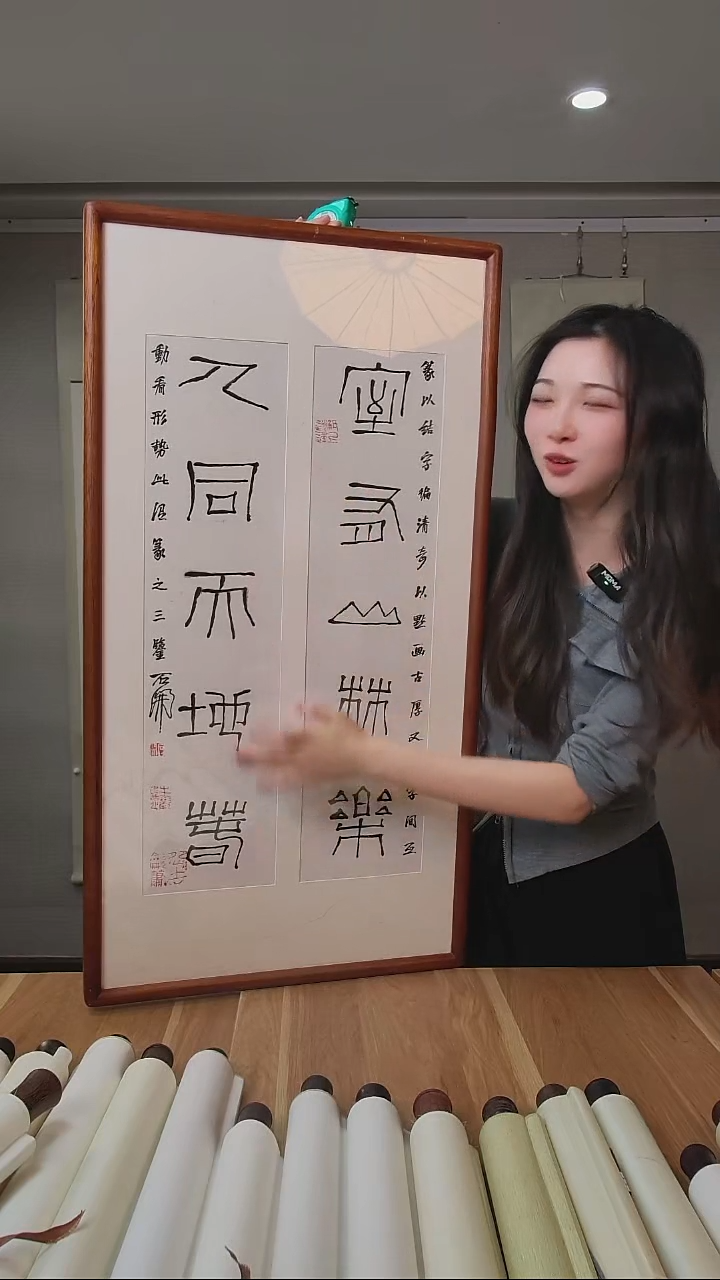 篆以結字清奇以點画古厚又字間互
室有山林樂
人同天地春
動看形勢此篆之三鑒 石開
MOMA